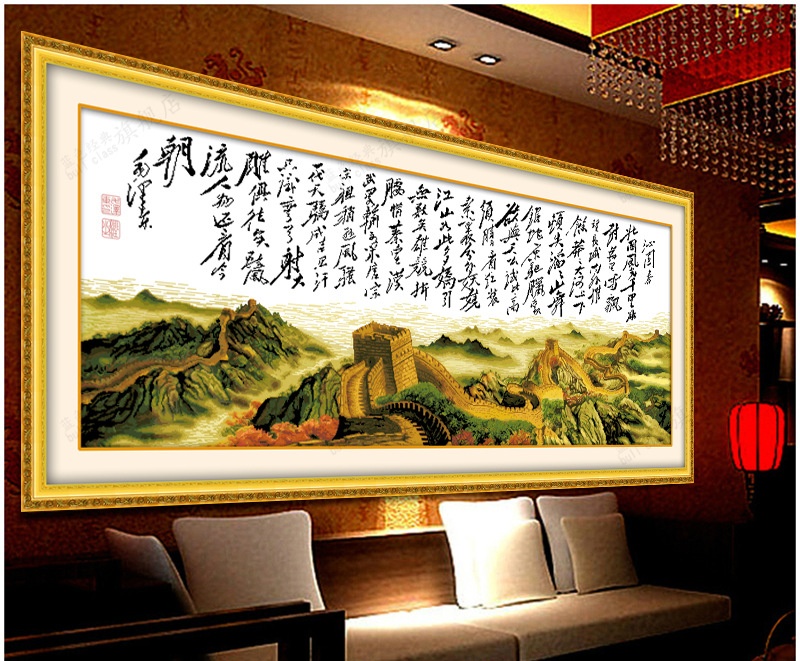 沁园春
北国风光千里冰
封万里雪飘
望长城内外惟
馀莽莽大河上下
顿失滔滔山舞
银蛇原驰腊象
欲与天公试比高
须晴日看红装
素裹分外妖娆
江山如此多娇引
无数英雄竞折
腰惜秦皇汉
武略输文采唐宗
宋祖稍逊风骚
一代天骄成吉思汗
只识弯弓射大
雕俱往矣数风
流人物还看今
朝
毛泽东
经典旗舰店